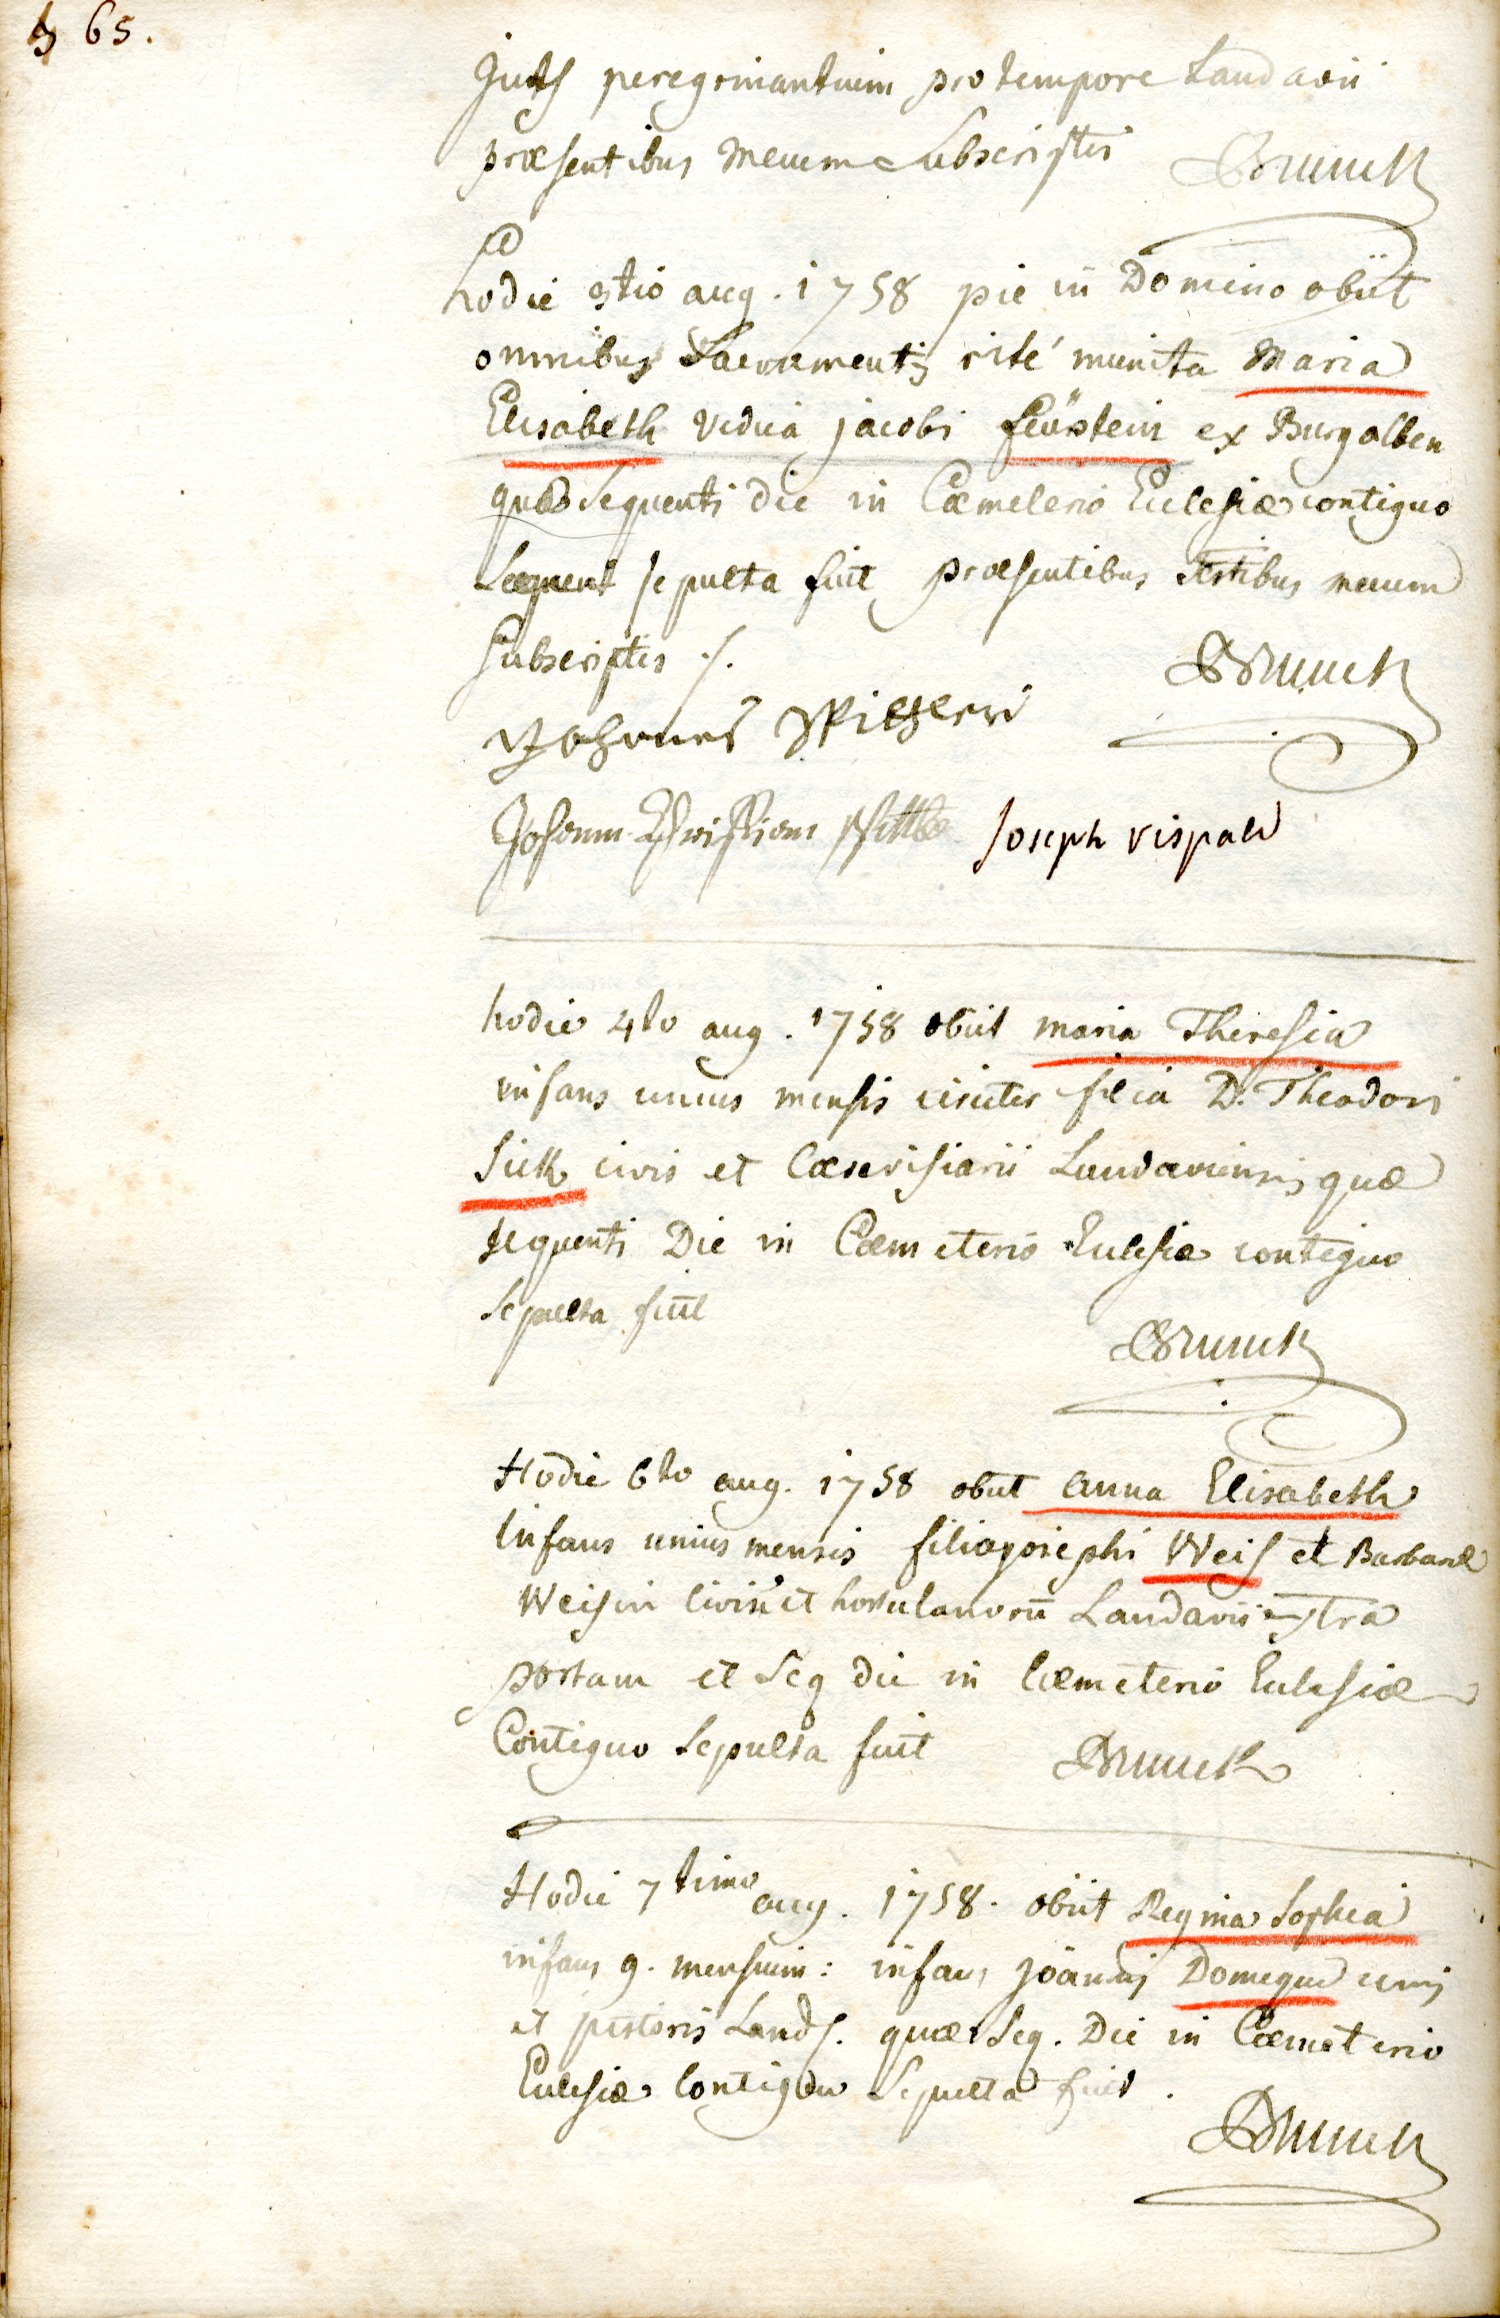 365.
peregrinantium pro tempore Landavii
præsentibus mecum Subscriptis Brunck
hodie 3tio aug. 1758 pie in Domino obiit
omnibus Sacramentis rité munita Maria
Elisabeth vidua jacobi feüstein ex Burgalben
quæ Sequenti die in Cœmeterio Ecclesiæ contiguo
sepulta fuit præsentibus testibus mecum
Subscriptis ./. Brunck
Johannes
Johann Christian Joseph vispald
hodie 4to aug. 1758 obiit maria Theresia
infans unius mensis circiter filia D. Theodori
Sick civis et Cœrevisiarii Landaviensis quæ
sequenti Die in Cœmeterio Ecclesiæ contiguo
Sepulta fuit
Brunck
Hodie 6to aug. 1758 obiit anna Elisabeth
Infans unius mensis filia josephi Weis et Barbaræ
Weisin civis et hortulanorū Landavii extra
portam et Seq die in Cœmeterio Ecclesiæ
Contiguo Sepulta fuit Brunck
Hodie 7timo aug. 1758. obiit Regina Sophia
infans 9. mensium: infans joannis Domeque civis
et pistoris Lands. quæ Seq. Die in Cœmeterio
Ecclesiæ Contiguo Sepulta fuit.
Brunck